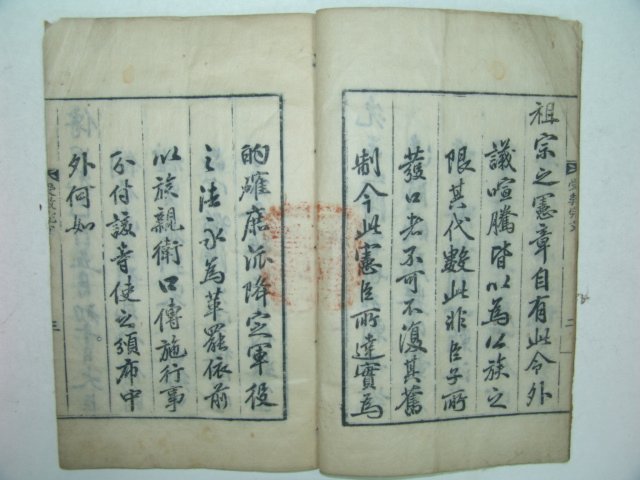 祖宗之憲章自有此令外
議喧騰皆以為公族之
限其代數此非臣子所
發口者不可不復其舊
制今此憲臣所達實為
的確磨派降定軍役
之法永為革罷依前
以族親衛口傳施行事
分付該寺使之頒布中
外何如
三
二